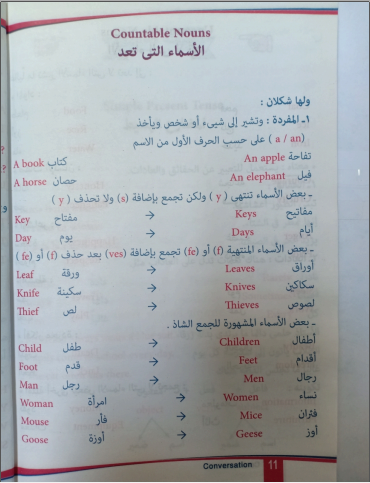 Countable Nouns
الأسماء التى تعد
ولها شكلان :
١ـ المفردة : وتشير إلى شىء أو شخص ويأخذ
(a / an) على حسب الحرف الأول من الاسم
A book كتاب An apple تفاحة
A horse حصان An elephant فيل
ـ بعض الأسماء تنتهى (y) ولكن تجمع بإضافة (s) ولا تحذف (y)
Key مفتاح → Keys مفاتيح
Day يوم → Days أيام
ـ بعض الأسماء المنتهية (f) أو (fe) تجمع بإضافة (ves) بعد حذف (f) أو (fe)
Leaf ورقة → Leaves أوراق
Knife سكينة → Knives سكاكين
Thief لص → Thieves لصوص
ـ بعض الأسماء المشهورة للجمع الشاذ .
Child طفل → Children أطفال
Foot قدم → Feet أقدام
Man رجل → Men رجال
Woman امرأة → Women نساء
Mouse فأر → Mice فئران
Goose أوزة → Geese أوز
Conversation 11